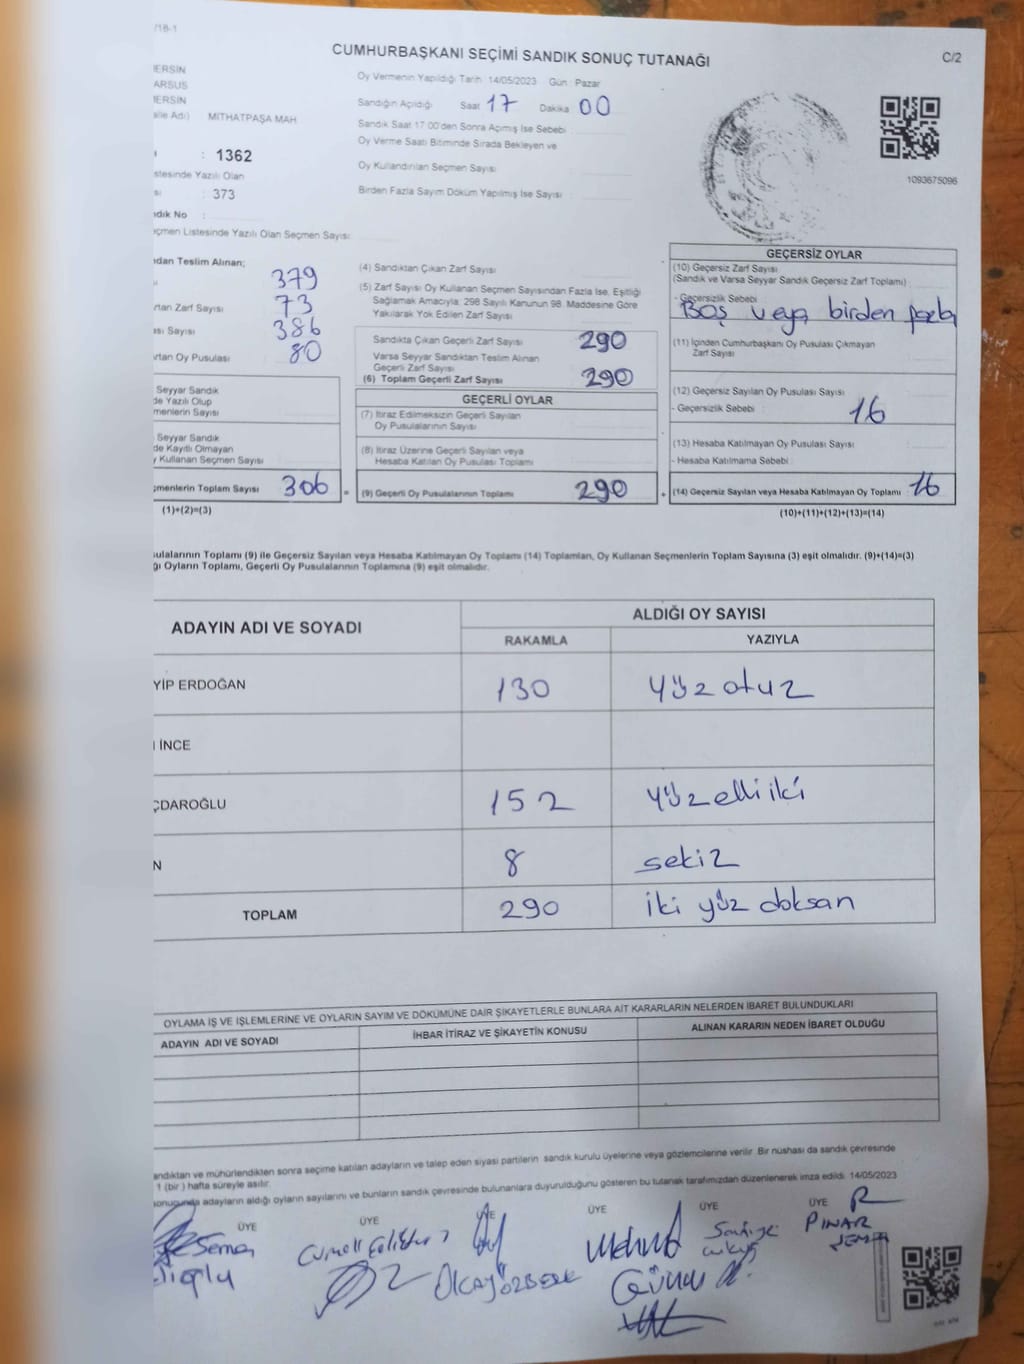 /18-1
CUMHURBAŞKANI SEÇİMİ SANDIK SONUÇ TUTANAĞI
C/2
ERSİN
ARSUS
ERSİN
alle Adı) MİTHATPAŞA MAH
: 1362
stesinde Yazılı Olan
: 373
ndık No :
çmen Listesinde Yazılı Olan Seçmen Sayısı
Oy Vermenin Yapıldığı Tarih 14/05/2023 Gün : Pazar
Sandığın Açıldığı Saat 17 Dakika 00
Sandık Saat 17:00'den Sonra Açımış İse Sebebi
Oy Verme Saati Bitiminde Sırada Bekleyen ve
Oy Kullandırılan Seçmen Sayısı
Birden Fazla Sayım Döküm Yapılmış İse Sayısı
1093675096
ndan Teslim Alınan;
379
rtan Zarf Sayısı 73
ası Sayısı 386
rtan Oy Pusulası 80
Seyyar Sandık
de Yazılı Olup
menlerin Sayısı
Seyyar Sandık
de Kayıtlı Olmayan
y Kullanan Seçmen Sayısı
çmenlerin Toplam Sayısı 306 =
(1)+(2)=(3)
(4) Sandıktan Çıkan Zarf Sayısı
(5) Zarf Sayısı Oy Kullanan Seçmen Sayısından Fazla İse, Eşitliği
Sağlamak Amacıyla; 298 Sayılı Kanunun 98. Maddesine Göre
Yakılarak Yok Edilen Zarf Sayısı
Sandıkta Çıkan Geçerli Zarf Sayısı 290
Varsa Seyyar Sandıktan Teslim Alınan
Geçerli Zarf Sayısı
(6) Toplam Geçerli Zarf Sayısı 290
GEÇERLİ OYLAR
(7) İtiraz Edilmeksizin Geçerli Sayılan
Oy Pusulalarının Sayısı
(8) İtiraz Üzerine Geçerli Sayılan veya
Hesaba Katılan Oy Pusulası Toplamı
(9) Geçerli Oy Pusulalarının Toplamı 290 +
GEÇERSİZ OYLAR
(10) Geçersiz Zarf Sayısı
(Sandık ve Varsa Seyyar Sandık Geçersiz Zarf Toplamı)
- Geçersizlik Sebebi
Boş veya birden fazla
(11) İçinden Cumhurbaşkanı Oy Pusulası Çıkmayan
Zarf Sayısı
(12) Geçersiz Sayılan Oy Pusulası Sayısı
- Geçersizlik Sebebi 16
(13) Hesaba Katılmayan Oy Pusulası Sayısı
- Hesaba Katılmama Sebebi
(14) Geçersiz Sayılan veya Hesaba Katılmayan Oy Toplamı 16
(10)+(11)+(12)+(13)=(14)
usulalarının Toplamı (9) ile Geçersiz Sayılan veya Hesaba Katılmayan Oy Toplamı (14) Toplamları, Oy Kullanan Seçmenlerin Toplam Sayısına (3) eşit olmalıdır. (9)+(14)=(3)
ğı Oyların Toplamı, Geçerli Oy Pusulalarının Toplamına (9) eşit olmalıdır.
ADAYIN ADI VE SOYADI
ALDIĞI OY SAYISI
RAKAMLA YAZIYLA
YİP ERDOĞAN 130 yüz otuz
İNCE
ÇDAROĞLU 152 yüz elli iki
N 8 sekiz
TOPLAM 290 iki yüz doksan
OYLAMA İŞ VE İŞLEMLERİNE VE OYLARIN SAYIM VE DÖKÜMÜNE DAİR ŞİKAYETLERLE BUNLARA AİT KARARLARIN NELERDEN İBARET BULUNDUKLARI
ADAYIN ADI VE SOYADI İHBAR İTİRAZ VE ŞİKAYETİN KONUSU ALINAN KARARIN NEDEN İBARET OLDUĞU
andıktan ve mühürlendikten sonra seçime katılan adayların ve talep eden siyasi partilerin sandık kurulu üyelerine veya gözlemcilerine verilir. Bir nüshası da sandık çevresinde
1 (bir) hafta süreyle asılır.
sonucunda adayların aldığı oyların sayılarını ve bunların sandık çevresinde bulunanlara duyurulduğunu gösteren bu tutanak tarafımızdan düzenlenerek imza edildi. 14/05/2023
ÜYE ÜYE ÜYE ÜYE ÜYE ÜYE
Sema
Mehmet
PINAR
OLCAY ÖZBERK